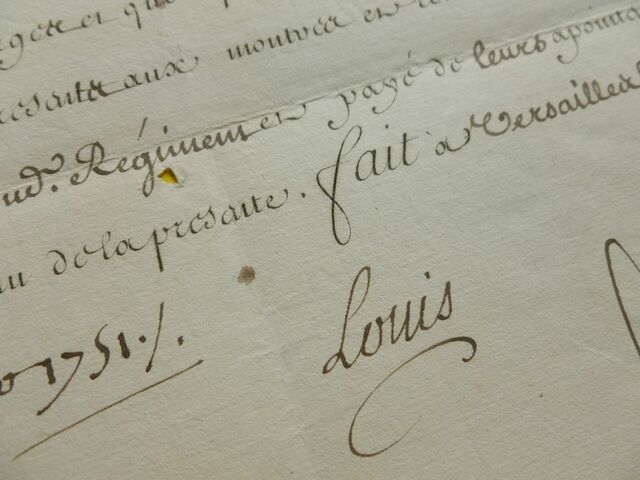 et que
presente aux montres et
ud.t Régiment et payé de leurs apointe
de la presente. fait à Versailles
1751./.
Louis